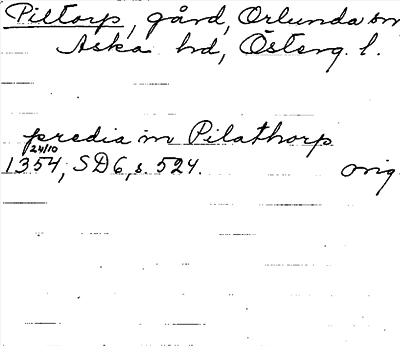 Piltorp, gård, Orlunda sn
Aska hd, Österg. l.
predia in Pilathorp
24/10
1354, SD6, s. 524. orig